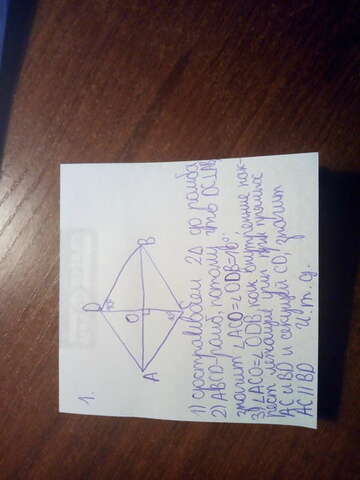 1.
D
B
O
A
C
1) достраиваем 2Δ до ромба
2) ABCD-ромб, потому что DC⊥AB,
значит ∠ACO=∠ODB=
3) ∠ACO=∠ODB, как внутренние нак-
рест лежащие при прямых
AC и BD и секущей CD, значит
AC||BD и.т.д.